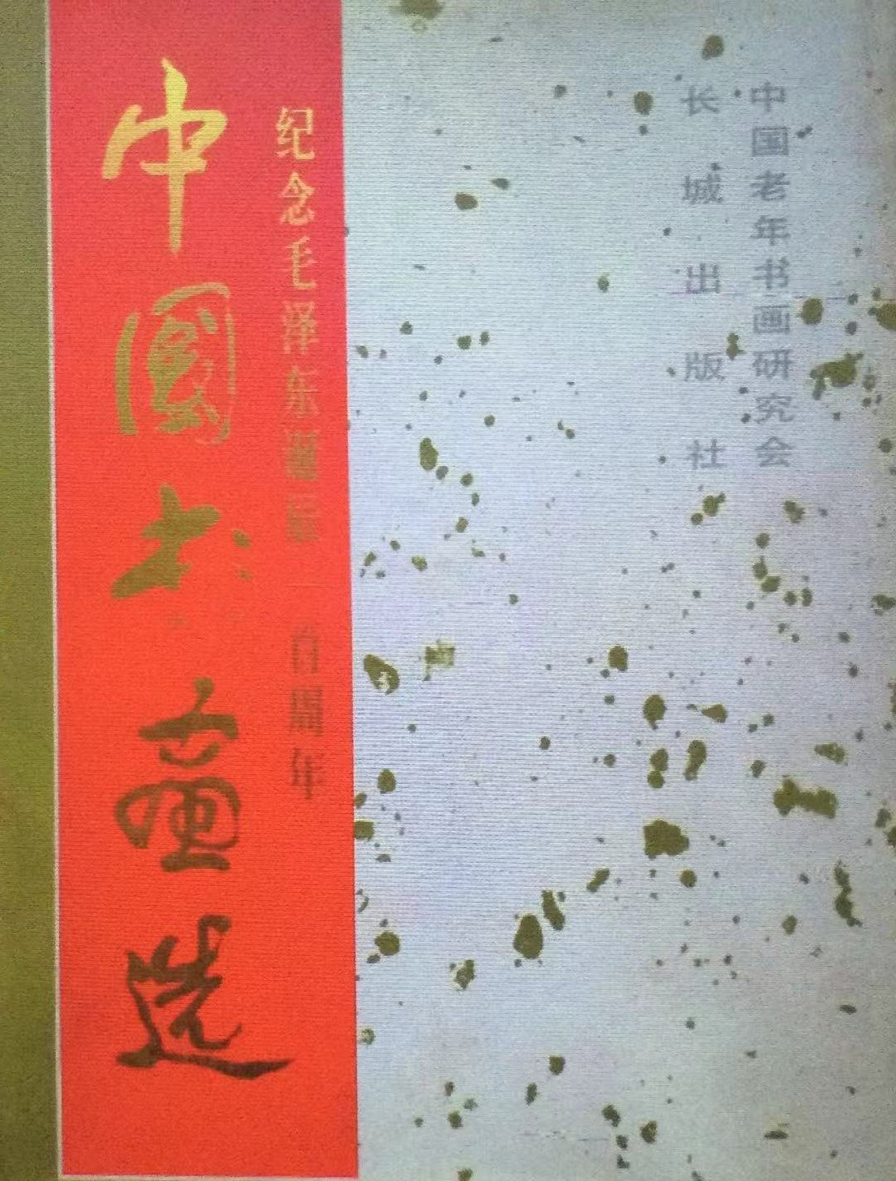 中国老年书画研究会
长城出版社
纪念毛泽东诞辰一百周年
中國书畫选